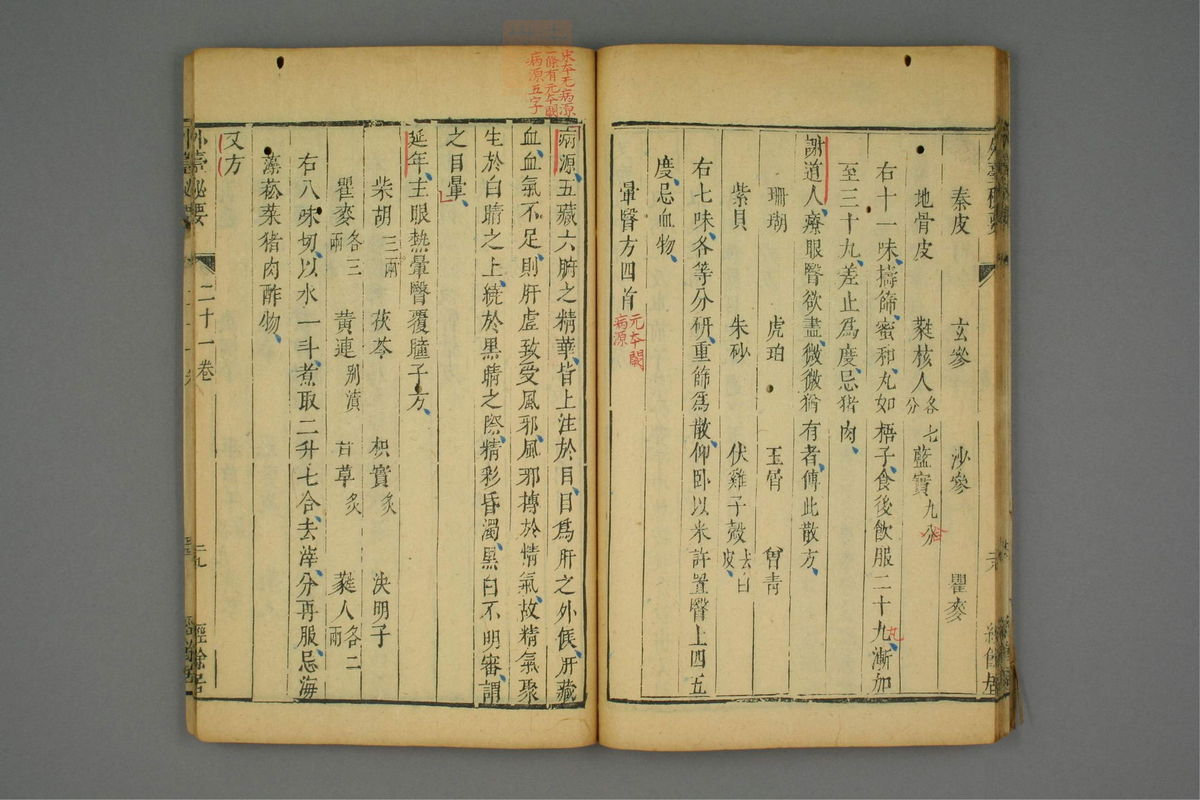 秦皮 玄參 沙參 瞿麥
地骨皮 蕤核人各七分 藍實九分
合
右十一味擣篩蜜和丸如梧子食後飲服二十九漸加
丸
至三十九差止爲度忌猪肉
謝道人療眼瞖欲盡微微猶有者傅此散方
珊瑚 虎珀 玉屑 曾青
紫貝 朱砂 伏雞子殼去白皮
右七味各等分研重篩爲散仰卧以米許置瞖上四五
度忌血物
暈瞖方四首
元本闕病源
宋本无病源
一條有元本闕
病源五字
病源五藏六腑之精華皆上注於目目爲肝之外候肝藏
血血氣不足則肝虛致受風邪風邪搏於情氣故精氣聚
生於白睛之上繞於黑睛之際精彩昏濁黑白不明審謂
之目暈
延年主眼熱暈瞖覆瞳子方
柴胡三兩 茯苓 枳實炙 決明子
瞿麥各三兩 黃連別漬 甘草炙 蕤人各二兩
右八味切以水一斗煮取二升七合去滓分再服忌海
藻菘菜猪肉酢物
又方
外臺秘要 二十一卷 二九 經餘居